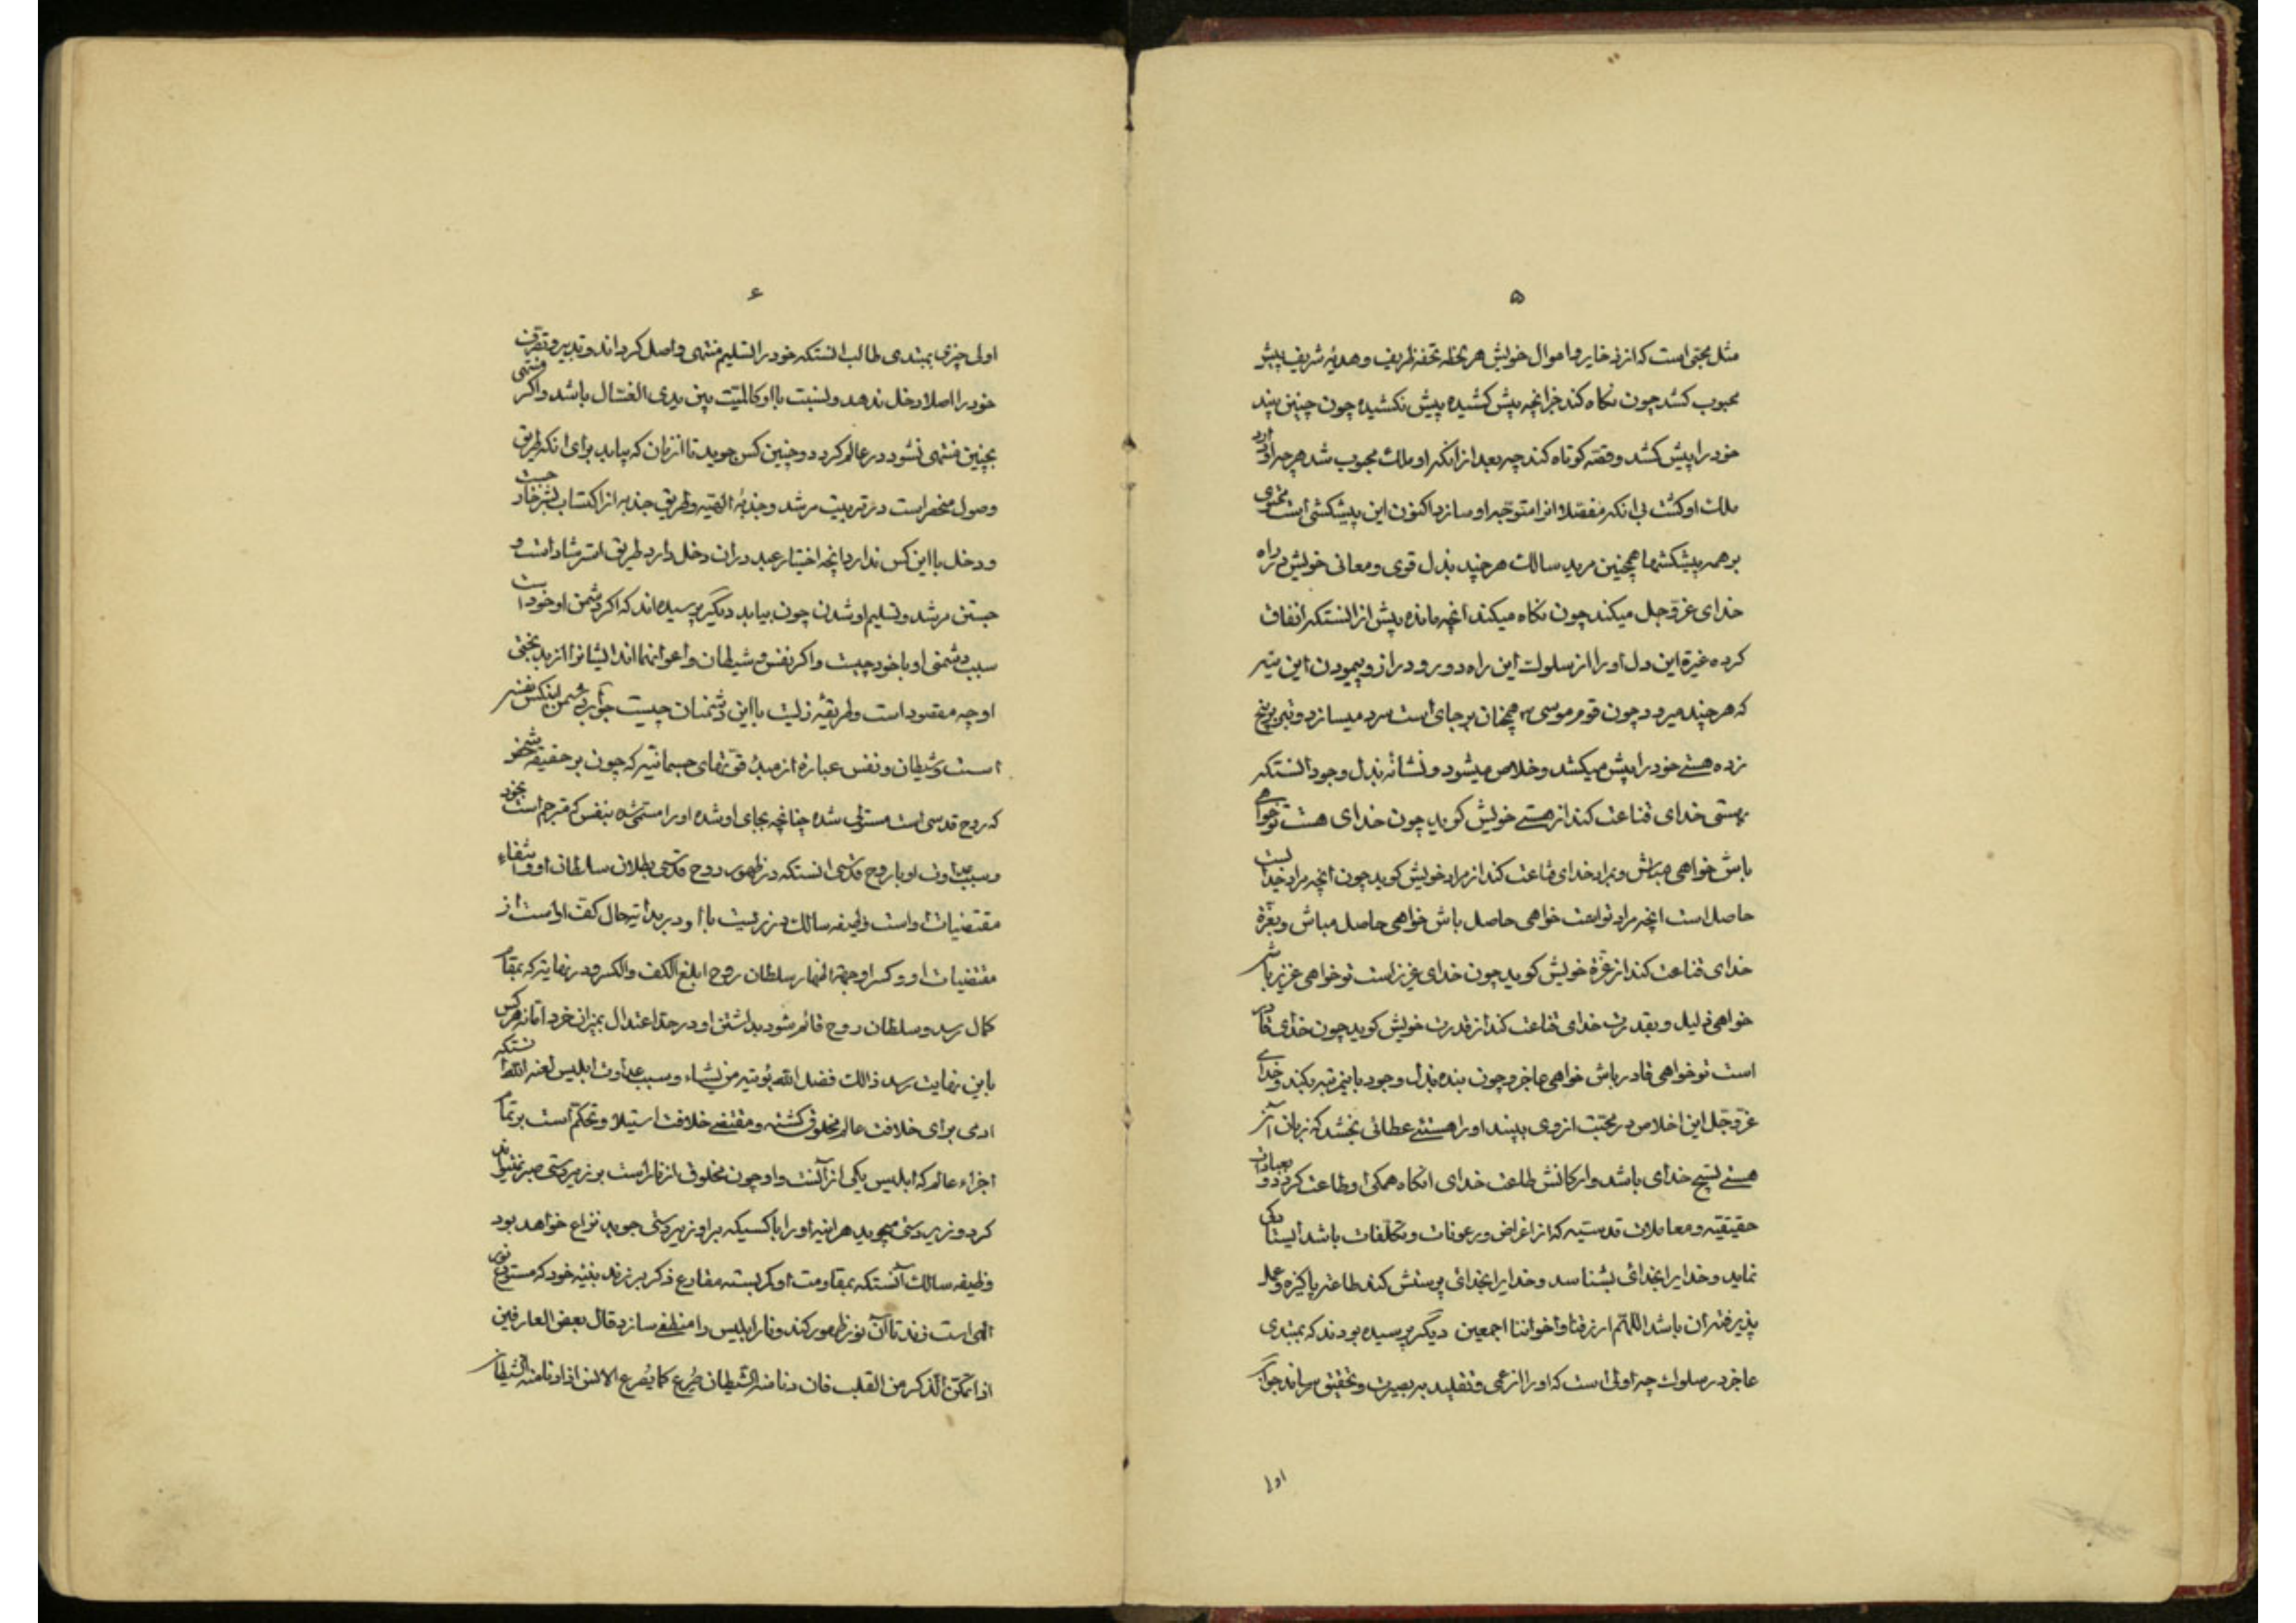 ۵
مثل محبی است که از ذخایر و اموال خویش هر لحظه تحفه ظریف و هدیه شریف پیش
محبوب کشد چون نکاه کند جز آنچه پیش کشیده پیش نکشیده چون چنین بیند
خود را پیش کشد و قصه کوتاه کند چه بعد از آنکه او ملک محبوب شد هر چه او دارد
ملک او کشت بی آنکه مفصلا انرا متوجه او سازد اکنون این پیشکشی است محتوی
بر همه پیشکشها همچنین مرید سالک هر چند بذل قوی و معانی خویش در راه
خدای عز و جل میکند چون نکاه میکند آنچه مانده بیش از آنستکه انفاق
کرده غیرة این دل او را از سلوک این راه دور و دراز و پیمودن این تیه
که هر چند میرود چون قوم موسی ع همچنان بر جای است سرد میسازد و تبر بر بیخ
زده هستی خود را پیش میکشد و خلاص میشود و نشانه بذل وجود آنستکه
بهستی خدای قناعت کند از هستی خویش کوید چون خدای هست تو خواهی
باش خواهی مباش و بمراد خدای قناعت کند از مراد خویش کوید چون آنچه مراد خداست
حاصل است آنچه مراد تو است خواهی حاصل باش خواهی حاصل مباش و بعزة
خدای قناعت کند از عزة خویش کوید چون خدای عزیز است تو خواهی عزیز باش
خواهی ذلیل و بقدرت خدای قناعت کند از قدرت خویش کوید چون خدای قادر
است تو خواهی قادر باش خواهی عاجز و چون بنده بذل وجود باینمرتبه بکند و خدای
عز و جل این اخلاص در محبت از وی ببیند او را هستئی عطائی بخشد که زبان آن
هستی تسبیح خدای باشد و ارکانش طاعت خدای آنکاه همکی او طاعت کردد و بعبادات
حقیقیه و معاملات قدسیه که از اغراض و رعونات و تکلفات باشد ایستادکی
نماید و خدا را بخدائی بشناسد و خدا را بخدائی پرستش کند طاعتی پاکیزه و عمل
پذیرفته آن باشد اللهم ارزقنا و اخواننا اجمعین دیگر پرسیده بودند که بمبتدی
عاجز در سلوک چه اولی است که او را از عمی و تقلید ببصیرت و تحقیق رساند جواب
اولی
۶
اولی چیزی بمبتدی طالب آنستکه خود را بتسلیم منتهی واصل کرداند و تدبیر و تصرف
خود را اصلا دخل ندهد و نسبت با او کالمیت بین یدی الغسال باشد و اکر منتهی
بچنین منتهی نشود در عالم کردد و چنین کس جوید تا از زمان که بیابد برای آنکه طریق
وصول منحصر است در تربیت مرشد و جذبهٔ الهیه و طریق جذبه از اکتساب بشر خارجست
و دخل با این کس ندارد آنچه اختیار عبد در آن دخل دارد طریق استرشاد است و
جستن مرشد و تسلیم او شدن چون بیابد دیگر پرسیده اند که اکر دشمن او خود است
سبب دشمنی او با خود چیست و اکر نفس و شیطان و اعوانهما اند ایشانرا از بدبختی
او چه مقصود است و طریقهٔ زیست با این دشمنان چیست جواب دشمن اینکس نفس
است و شیطان و نفس عبارة از مبدء قوتهای جسمانیه که چون بر حقیقة شخص
که روح قدسی است مستولی شده چنانچه بجای او شده او را مستمی شده بنفس که مترجم است بخود
و سبب عداوت او با روح قدسی آنستکه در ظهور روح قدسی بطلان سلطان او و انتفاء
مقتضیات او است وظیفه سالک در زیست با او در بدایة حال کف او است از
مقتضیات او و کسر او جهة اظهار سلطان روح ابلغ الکف و الکسر و در نهایة که بمقام
کمال رسد و سلطان روح قائم شود بداشتن او در حد اعتدال بمیزان خرد اما نه هر کس
باین نهایت رسد ذالک فضل الله یؤتیه من یشاء و سبب عداوت ابلیس لعنه الله آنستکه
ادمی برای خلافت عالم مخلوق کشته و مقتضی خلافت استیلا و تحکم است بر تمام
اجزاء عالم که ابلیس یکی از آنست و او چون مخلوق از نار است بر زیردستی صبر نتواند
کرد و زبردستی میجوید هر اینه او را با کسیکه بر او زبردستی جوید نزاع خواهد بود
وظیفه سالک آنستکه بمقاومت او کمر بسته مقارع ذکر بر زند بنیه خود که مستودع نور
الهی است زند تا آن نور ظهور کند و نار ابلیس را منطفی سازد قال بعض العارفین
اذا تمکن الذکر من القلب فان دنا منه الشیطان صرع کما یصرع الانس اذا دنا منه الشیطان